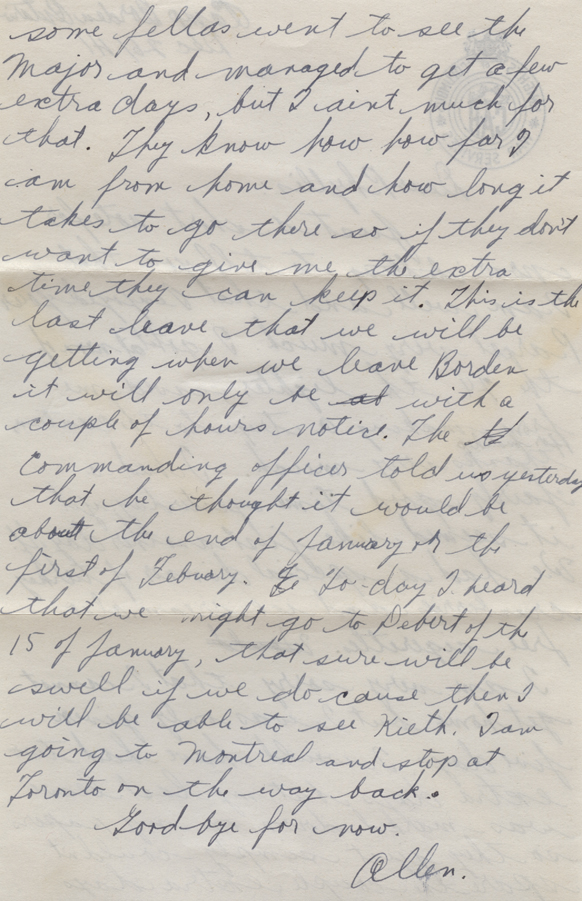 some fellas went to see the
Major and managed to get a few
extra days, but I aint much for
that. They know how how far I
am from home and how long it
takes to go there so if they don't
want to give me the extra
time they can keep it. This is the
last leave that we will be
getting when we leave Borden
it will only be at with a
couple of hours notice. The
Commanding officer told us yesterday
that he thought it would be
about the end of January or the
first of Febuary. To-day I heard
that we might go to Debert of the
15 of January, that sure will be
swell if we do cause then I
will be able to see Kieth. I am
going to Montreal and stop at
Toronto on the way back.
Good-bye for now.
Allen.